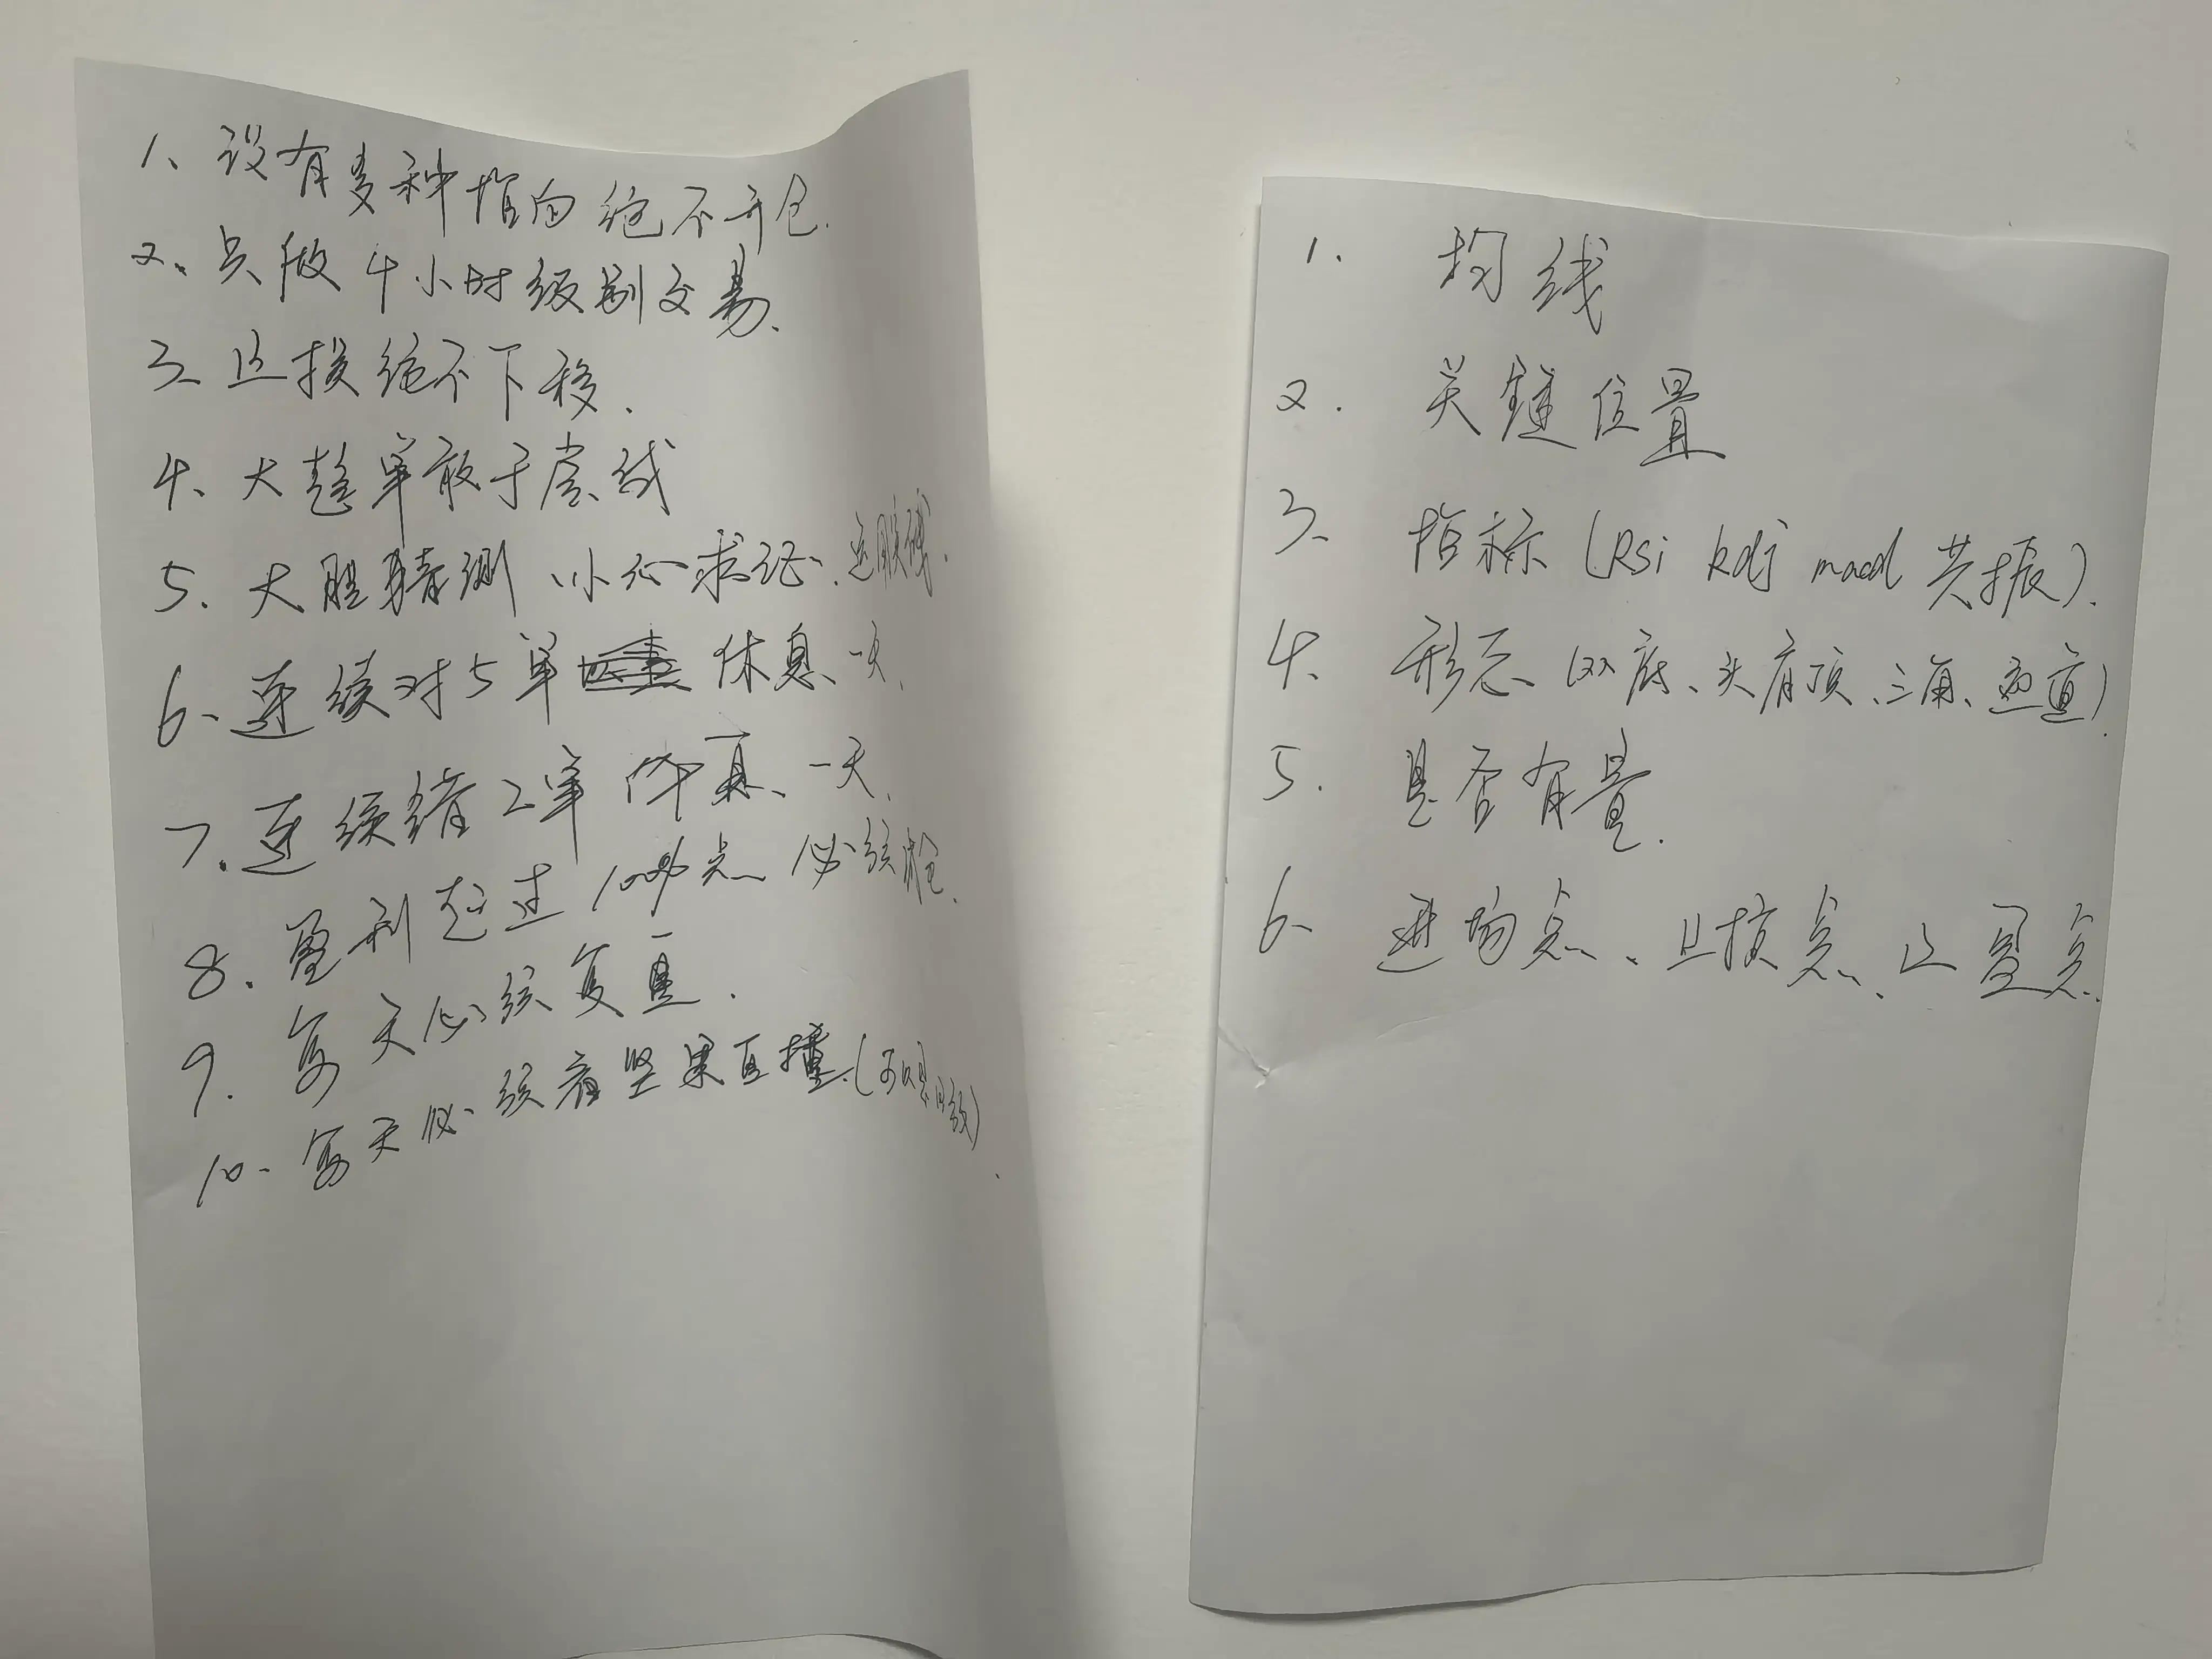 1、没有多种指向绝不开仓.
2、只做4小时级别交易、
3、止损绝不下移.
4、大趋单敢于尝试
5、大胆猜测 小心求证、
6、连续对5单 休息一天、
7、连续错2单 休息、一天、
8.盈利超过100%点 必须
9.每天必须复盘.
10、每天必须看坚果直播(可以是回放)
1. 均线
2. 关键位置
3、指标(Rsi kdj macd 共振).
4、形态(双底、头肩顶、三角、通道)
5. 是否有量.
6、进场点、止损点、止盈点.